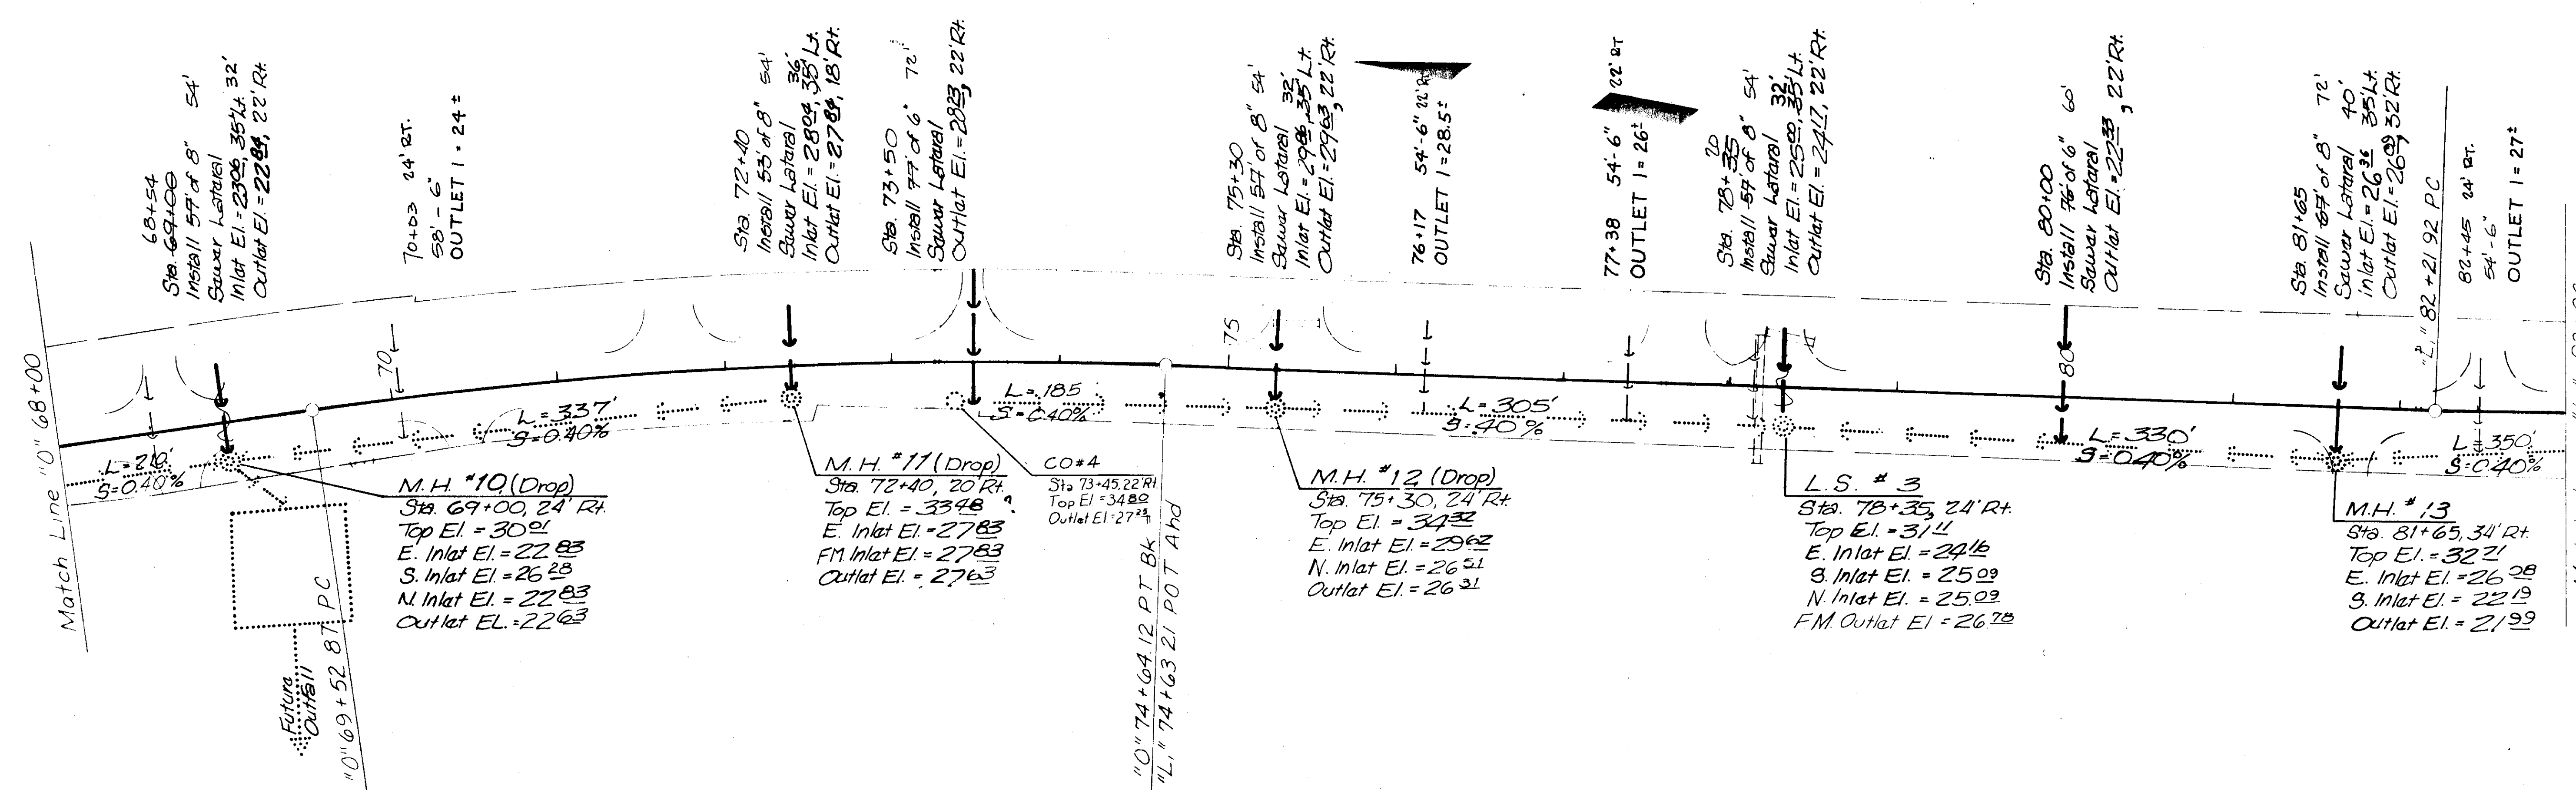 Match Line "O" 68+00
68+54
Sta. 69+00
Install 57' of 8" 54'
Sewer Lateral
Inlet El. = 23.06, 35' Lt. 32'
Outlet El. = 22.84, 22' Rt.
70+03 24' RT.
58'-6"
OUTLET I = 24±
Sta. 72+40
Install 53' of 8" 54'
Sewer Lateral 36'
Inlet El. = 28.04, 35' Lt.
Outlet El. = 27.84, 18' Rt.
Sta. 73+50
Install 77' of 6" 72'
Sewer Lateral
Outlet El. = 28.23, 22' Rt.
Sta. 75+30
Install 57' of 8" 54'
Sewer Lateral 32'
Inlet El. = 29.86, 35' Lt.
Outlet El. = 29.63, 22' Rt.
76+17 54'-6" 22' Rt.
OUTLET I = 28.5±
77+38 54'-6" 22' RT
OUTLET I = 26±
20
Sta. 78+35
Install 57' of 8" 54'
Sewer Lateral 32'
Inlet El. = 25.00, 35' Lt.
Outlet El. = 24.17, 22' Rt.
Sta. 80+00
Install 76' of 6" 60'
Sewer Lateral
Outlet El. = 22.33, 22' Rt.
Sta. 81+65
Install 67' of 8" 72'
Sewer Lateral 40'
Inlet El. = 26.36 35' Lt.
Outlet El. = 26.09, 32' Rt.
"L," 82+21.92 PC
82+45 24' RT.
54'-6"
OUTLET I = 27±
70
75
80
L=210'
S=0.40%
L=337'
S=0.40%
L=185
S=0.40%
L=305'
S=.40%
L=330'
S=0.40%
L=350'
S=0.40%
M.H. #10, (Drop)
Sta. 69+00, 24' Rt.
Top El. = 30.01
E. Inlet El. = 22.83
S. Inlet El. = 26.28
N. Inlet El. = 22.83
Outlet EL. = 22.63
Future
Outfall
"O" 69+52.87 PC
M.H. #11 (Drop)
Sta. 72+40, 20' Rt.
Top El. = 33.48 ?
E. Inlet El. = 27.83
FM Inlet El. = 27.83
Outlet El. = 27.63
CO #4
Sta 73+45, 22' Rt.
Top El = 34.80
Outlet El = 27.25
"O" 74+64.12 PT Bk
"L," 74+63.21 POT Ahd
M.H. #12 (Drop)
Sta. 75+30, 24' Rt.
Top El. = 34.32
E. Inlet El. = 29.62
N. Inlet El. = 26.51
Outlet El. = 26.31
L.S. #3
Sta. 78+35, 24' Rt.
Top El. = 31.11
E. Inlet El. = 24.16
S. Inlet El. = 25.09
N. Inlet El. = 25.09
FM. Outlet El = 26.78
M.H. #13
Sta. 81+65, 34' Rt.
Top El. = 32.21
E. Inlet El. = 26.08
S. Inlet El. = 22.19
Outlet El. = 21.99